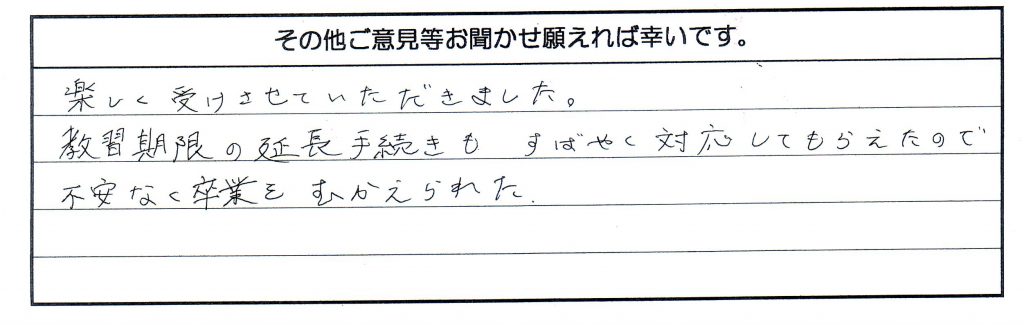 その他ご意見等お聞かせ願えれば幸いです。
楽しく受けさせていただきました。
教習期限の延長手続きも すばやく対応してもらえたので
不安なく卒業を むかえられた.